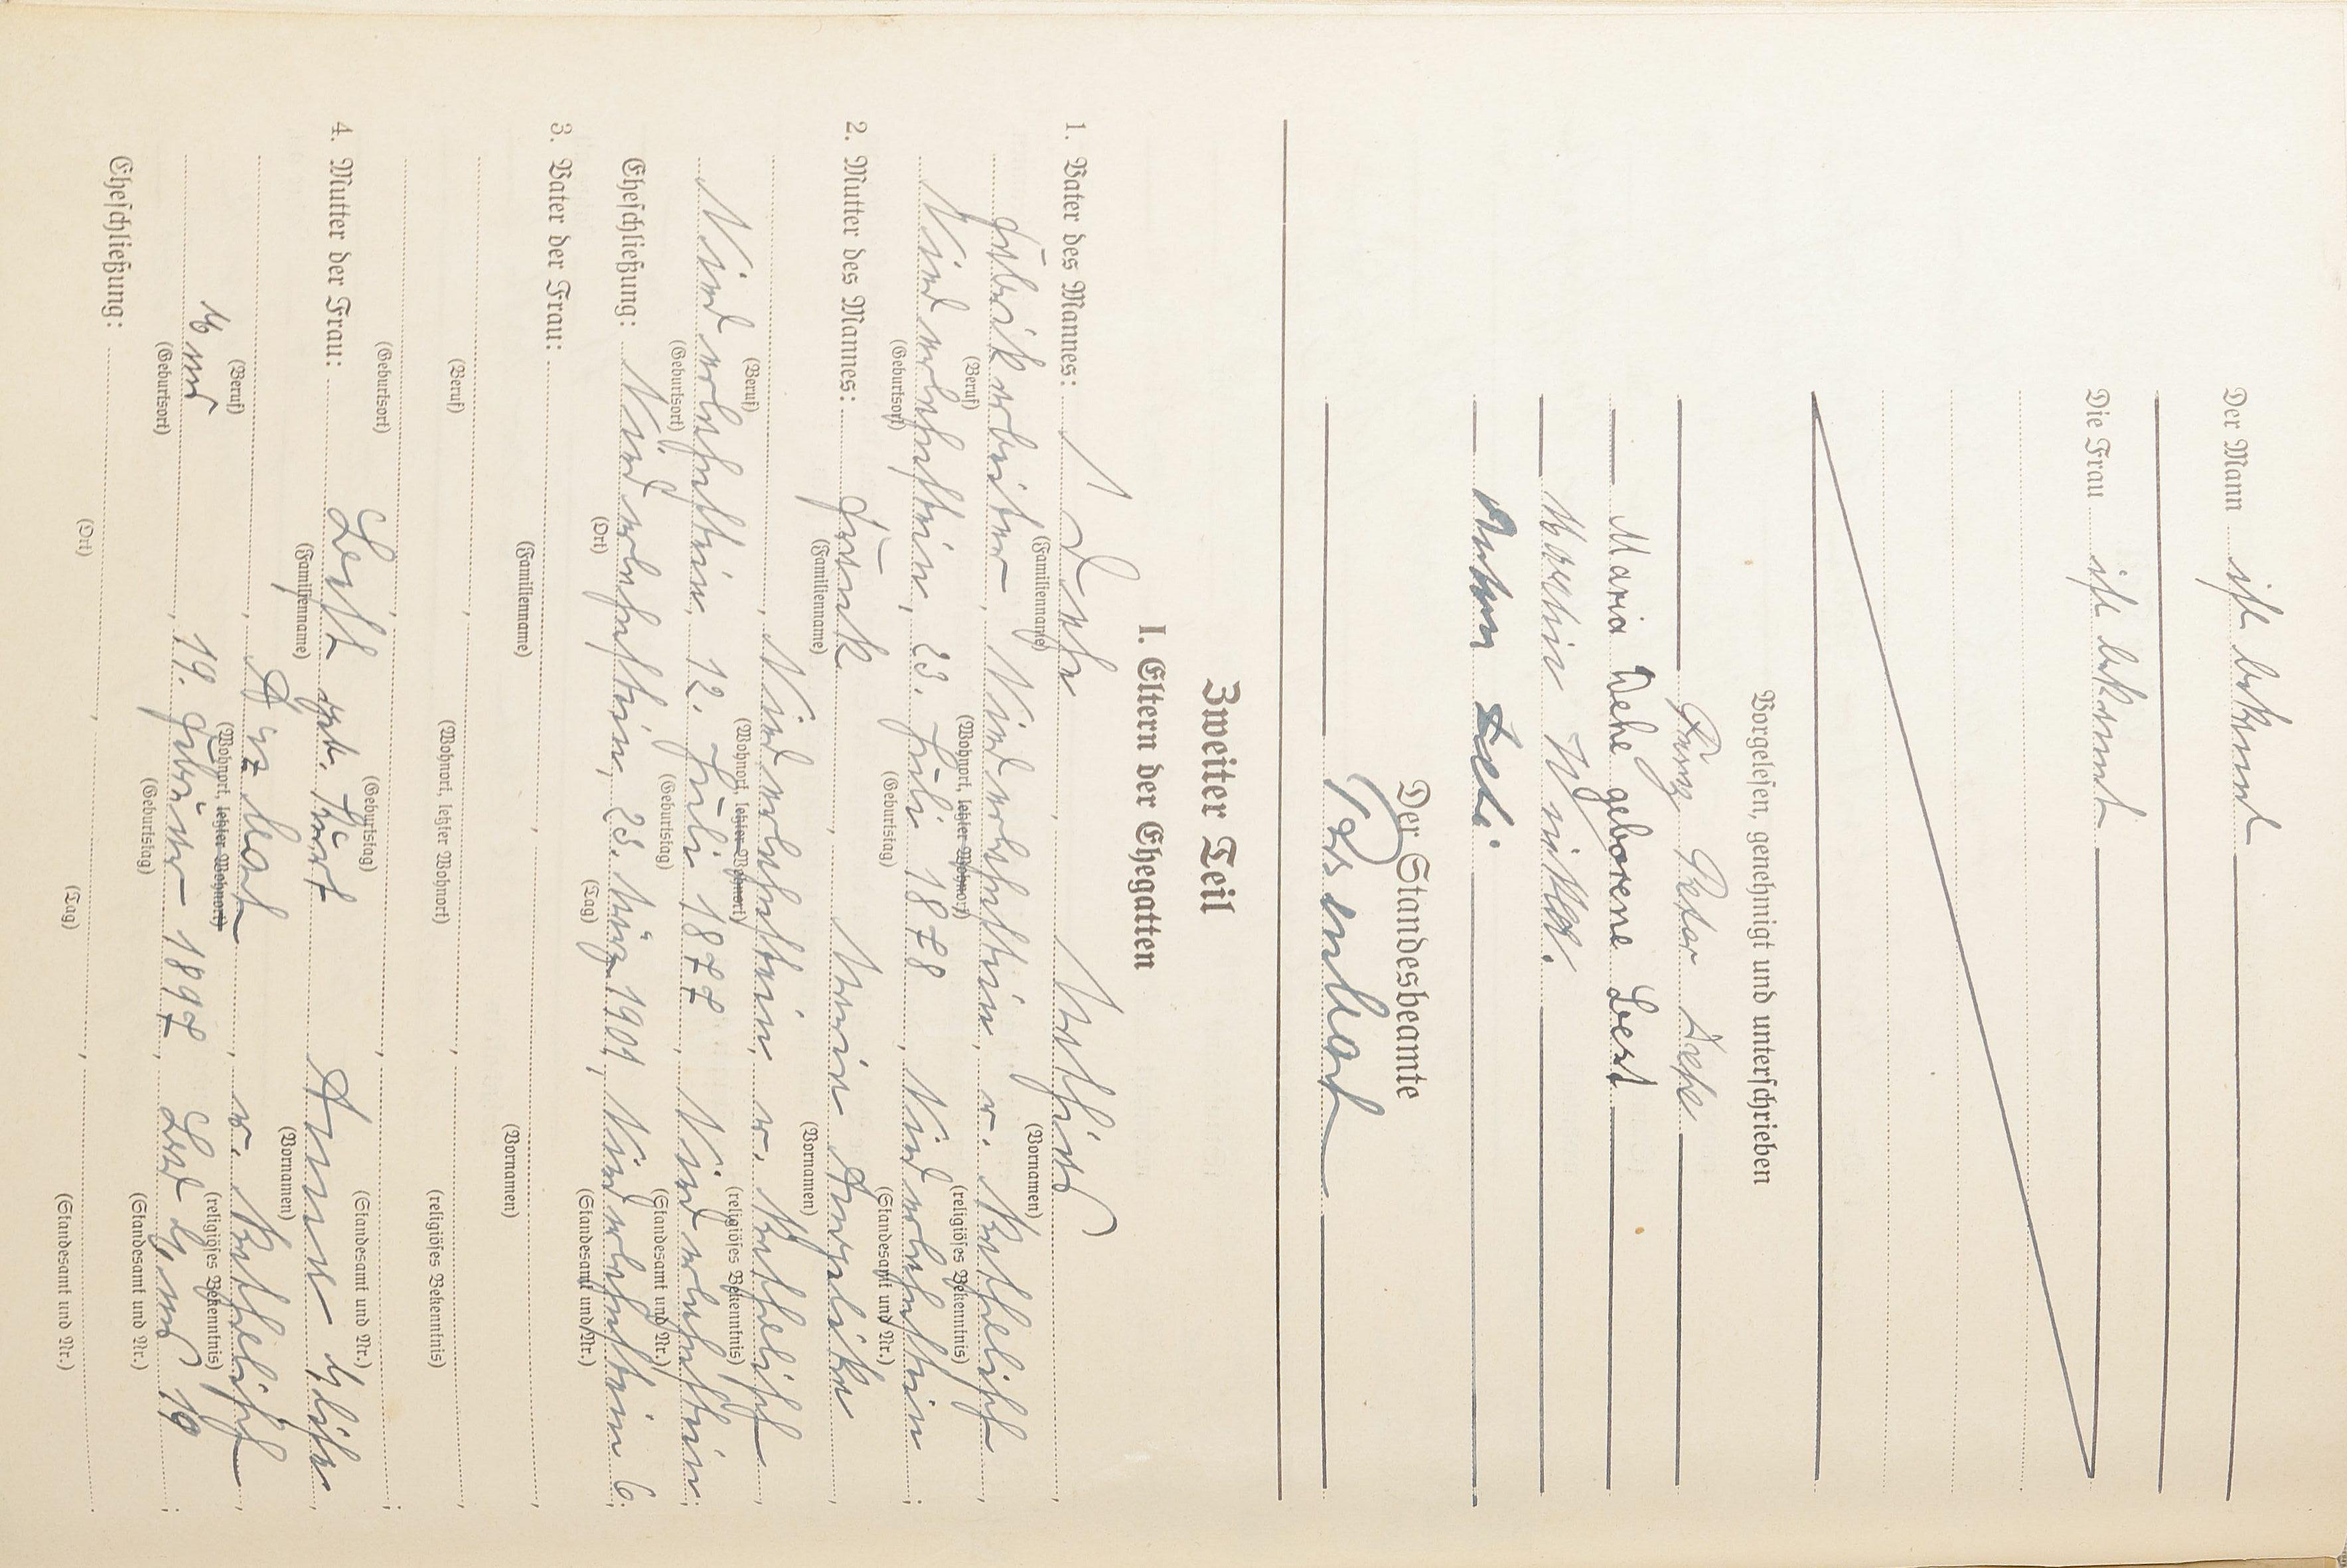 Der Mann ist bekannt
Die Frau ist bekannt
Vorgelesen, genehmigt und unterschrieben
Franz Peter Dehe
Maria Dehe geborene Lext
Martin
Anton
Der Standesbeamte
Zweiter Teil
I. Eltern der Ehegatten
1. Vater des Mannes: Dehe, Mathias,
(Familienname) (Vornamen)
Fabrikarbeiter, Niederlahnstein, r. Katholisch,
(Beruf) (Wohnort, letzter Wohnort) (religiöses Bekenntnis)
Niederlahnstein, 23. Juli 1878, Niederlahnstein;
(Geburtsort) (Geburtstag) (Standesamt und Nr.)
2. Mutter des Mannes: Frank, Maria Angelika,
(Familienname) (Vornamen)
, Niederlahnstein, r. Katholisch,
(Beruf) (Wohnort, letzter Wohnort) (religiöses Bekenntnis)
Niederlahnstein, 12. Juli 1877, Niederlahnstein;
(Geburtsort) (Geburtstag) (Standesamt und Nr.)
Eheschließung: Niederlahnstein, 23. März 1901, Niederlahnstein 6.
(Ort) (Tag) (Standesamt und Nr.)
3. Vater der Frau: , ,
(Familienname) (Vornamen)
, , ,
(Beruf) (Wohnort, letzter Wohnort) (religiöses Bekenntnis)
, , ;
(Geburtsort) (Geburtstag) (Standesamt und Nr.)
4. Mutter der Frau: geb. Anna
(Familienname) (Vornamen)
, Arzbach, r. Katholisch,
(Beruf) (Wohnort, letzter Wohnort) (religiöses Bekenntnis)
, 19. Februar 1897, 19;
(Geburtsort) (Geburtstag) (Standesamt und Nr.)
Eheschließung: , , .
(Ort) (Tag) (Standesamt und Nr.)